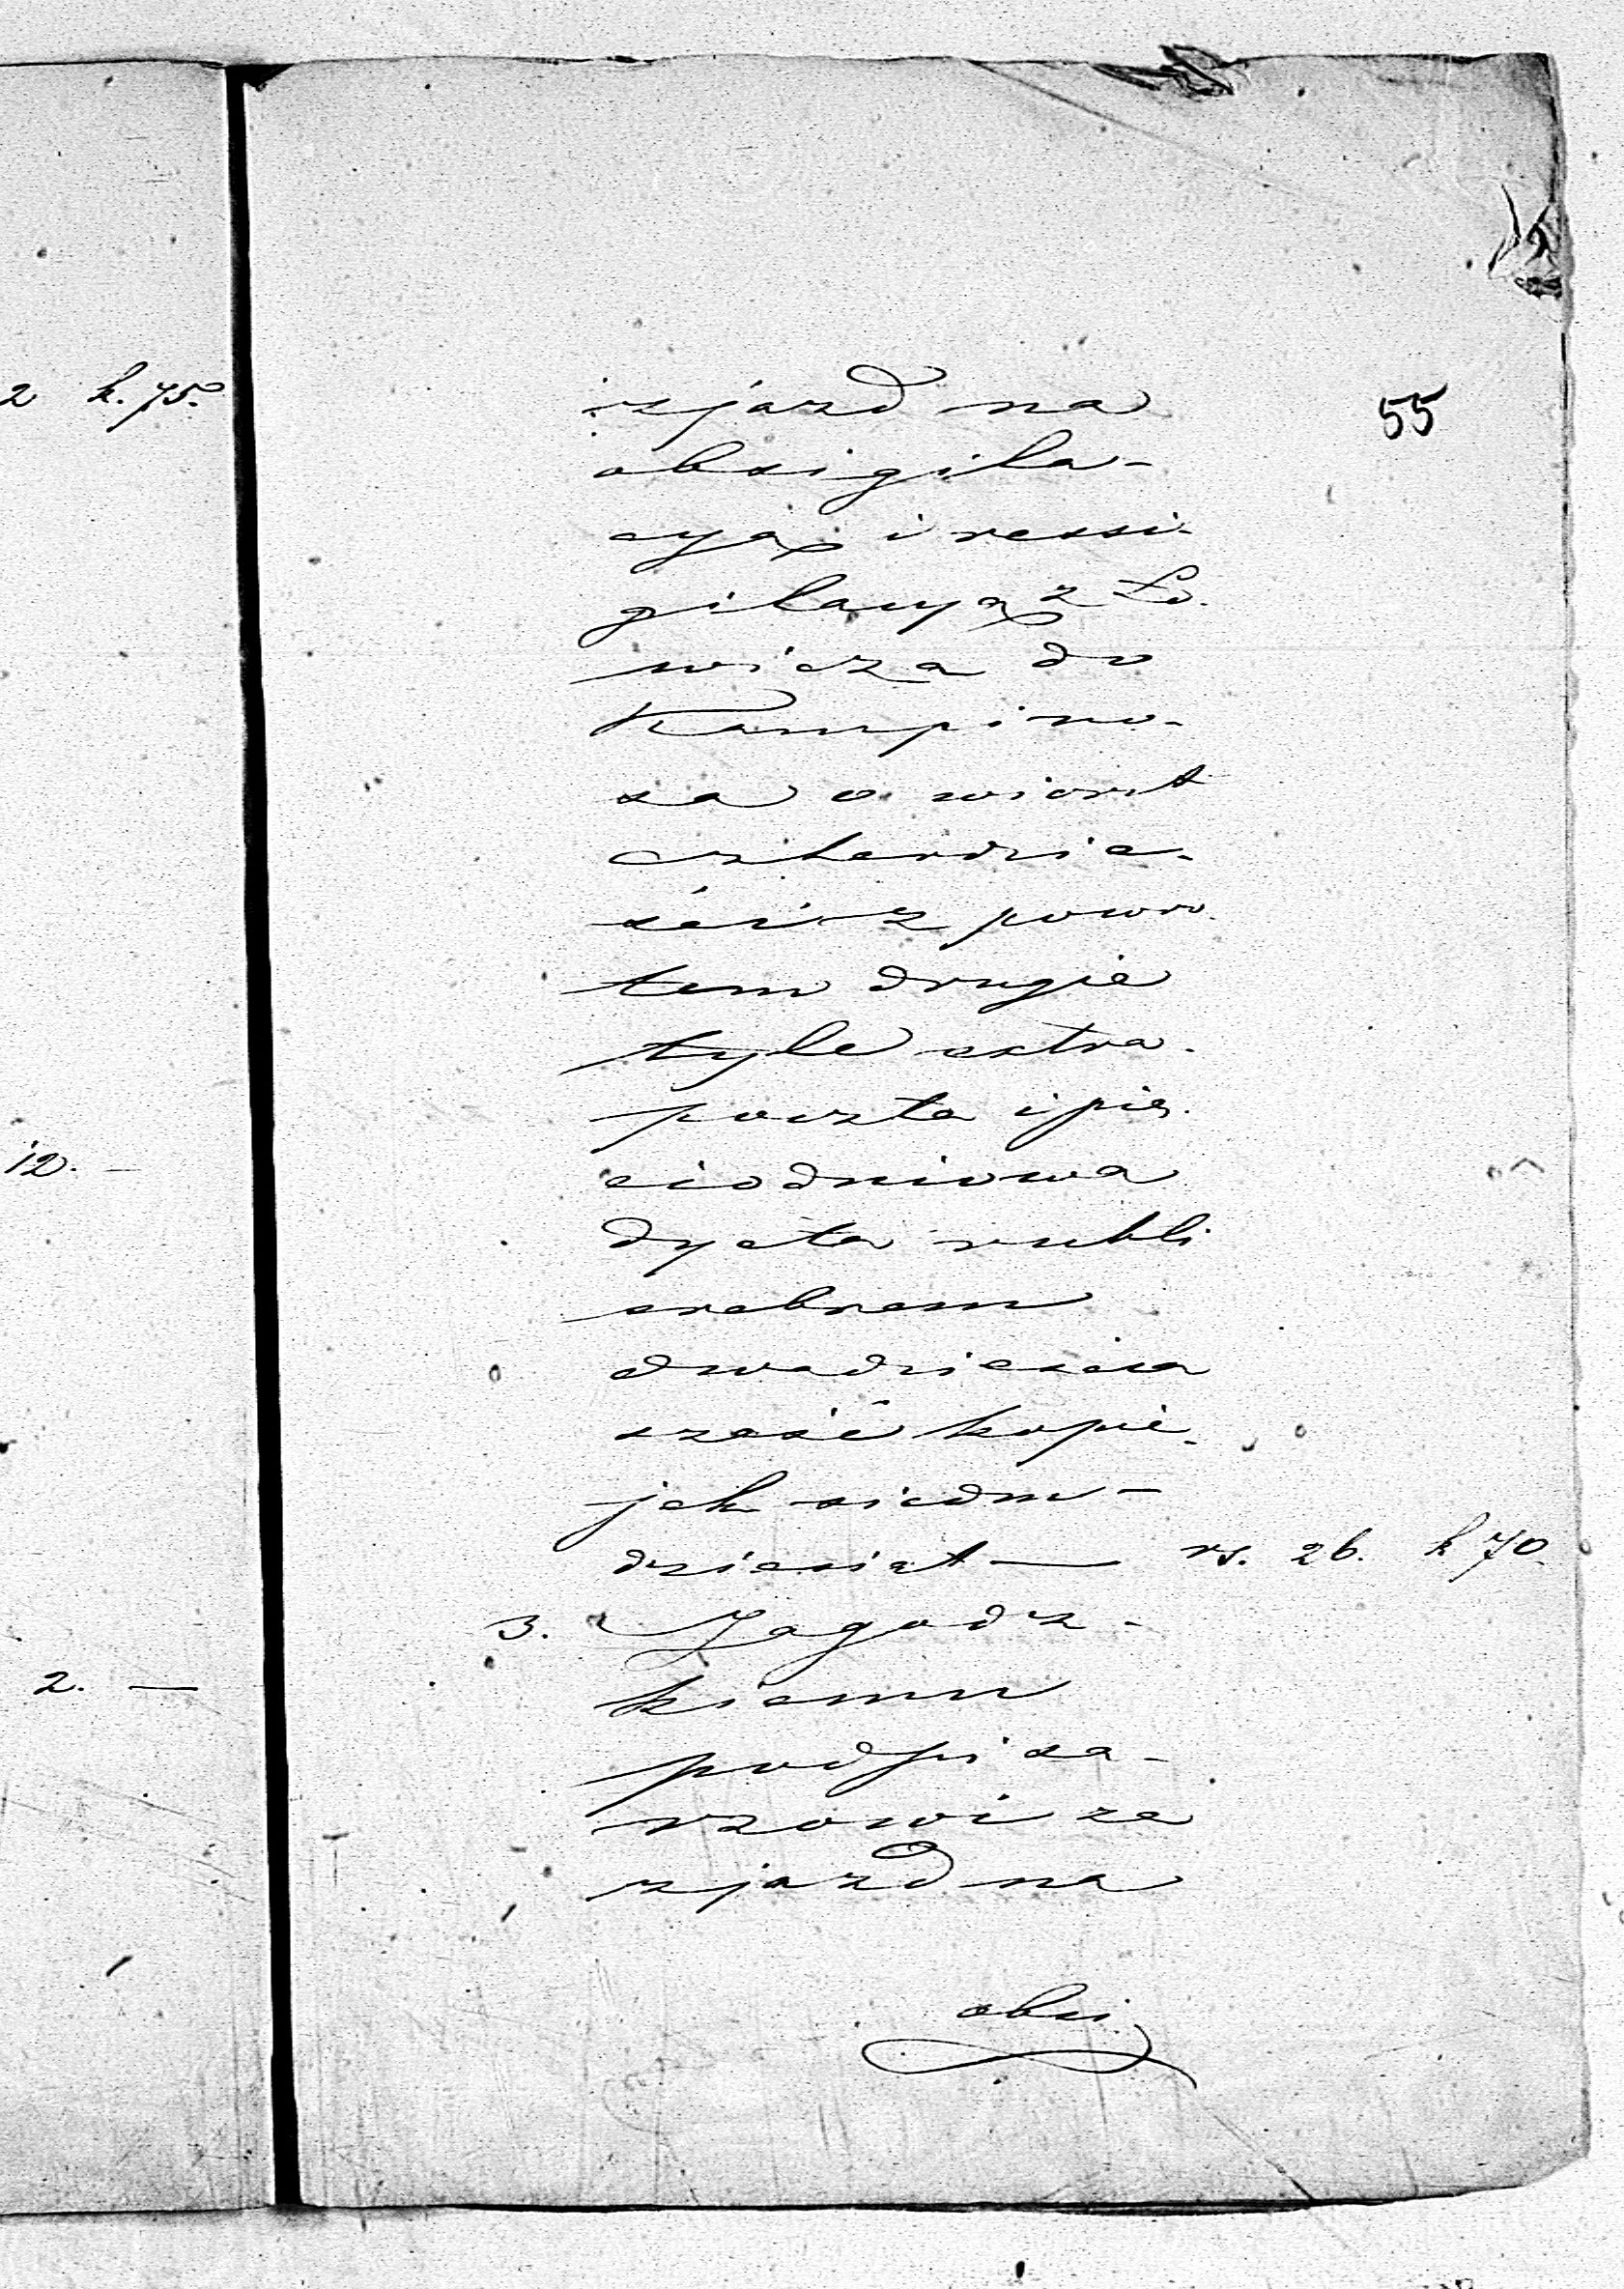 2 k. 75.
12. —
2. —
55
zjazd na
obsigila-
cyą i ressi-
gilacyą z Ło-
wicza do
Kampino-
sa o wiorst
czterdzie-
ści z powro-
tem drugie
tyle extra-
poczta i pię-
ciodniowa
dyeta rubli
srebrem
dwadzieścia
sześć kopie-
jek siedm-
dziesiąt — rs. 26. k 70.
3. Jagodz-
kiemu
podpisa-
rzowi za
zjazd na
obsi